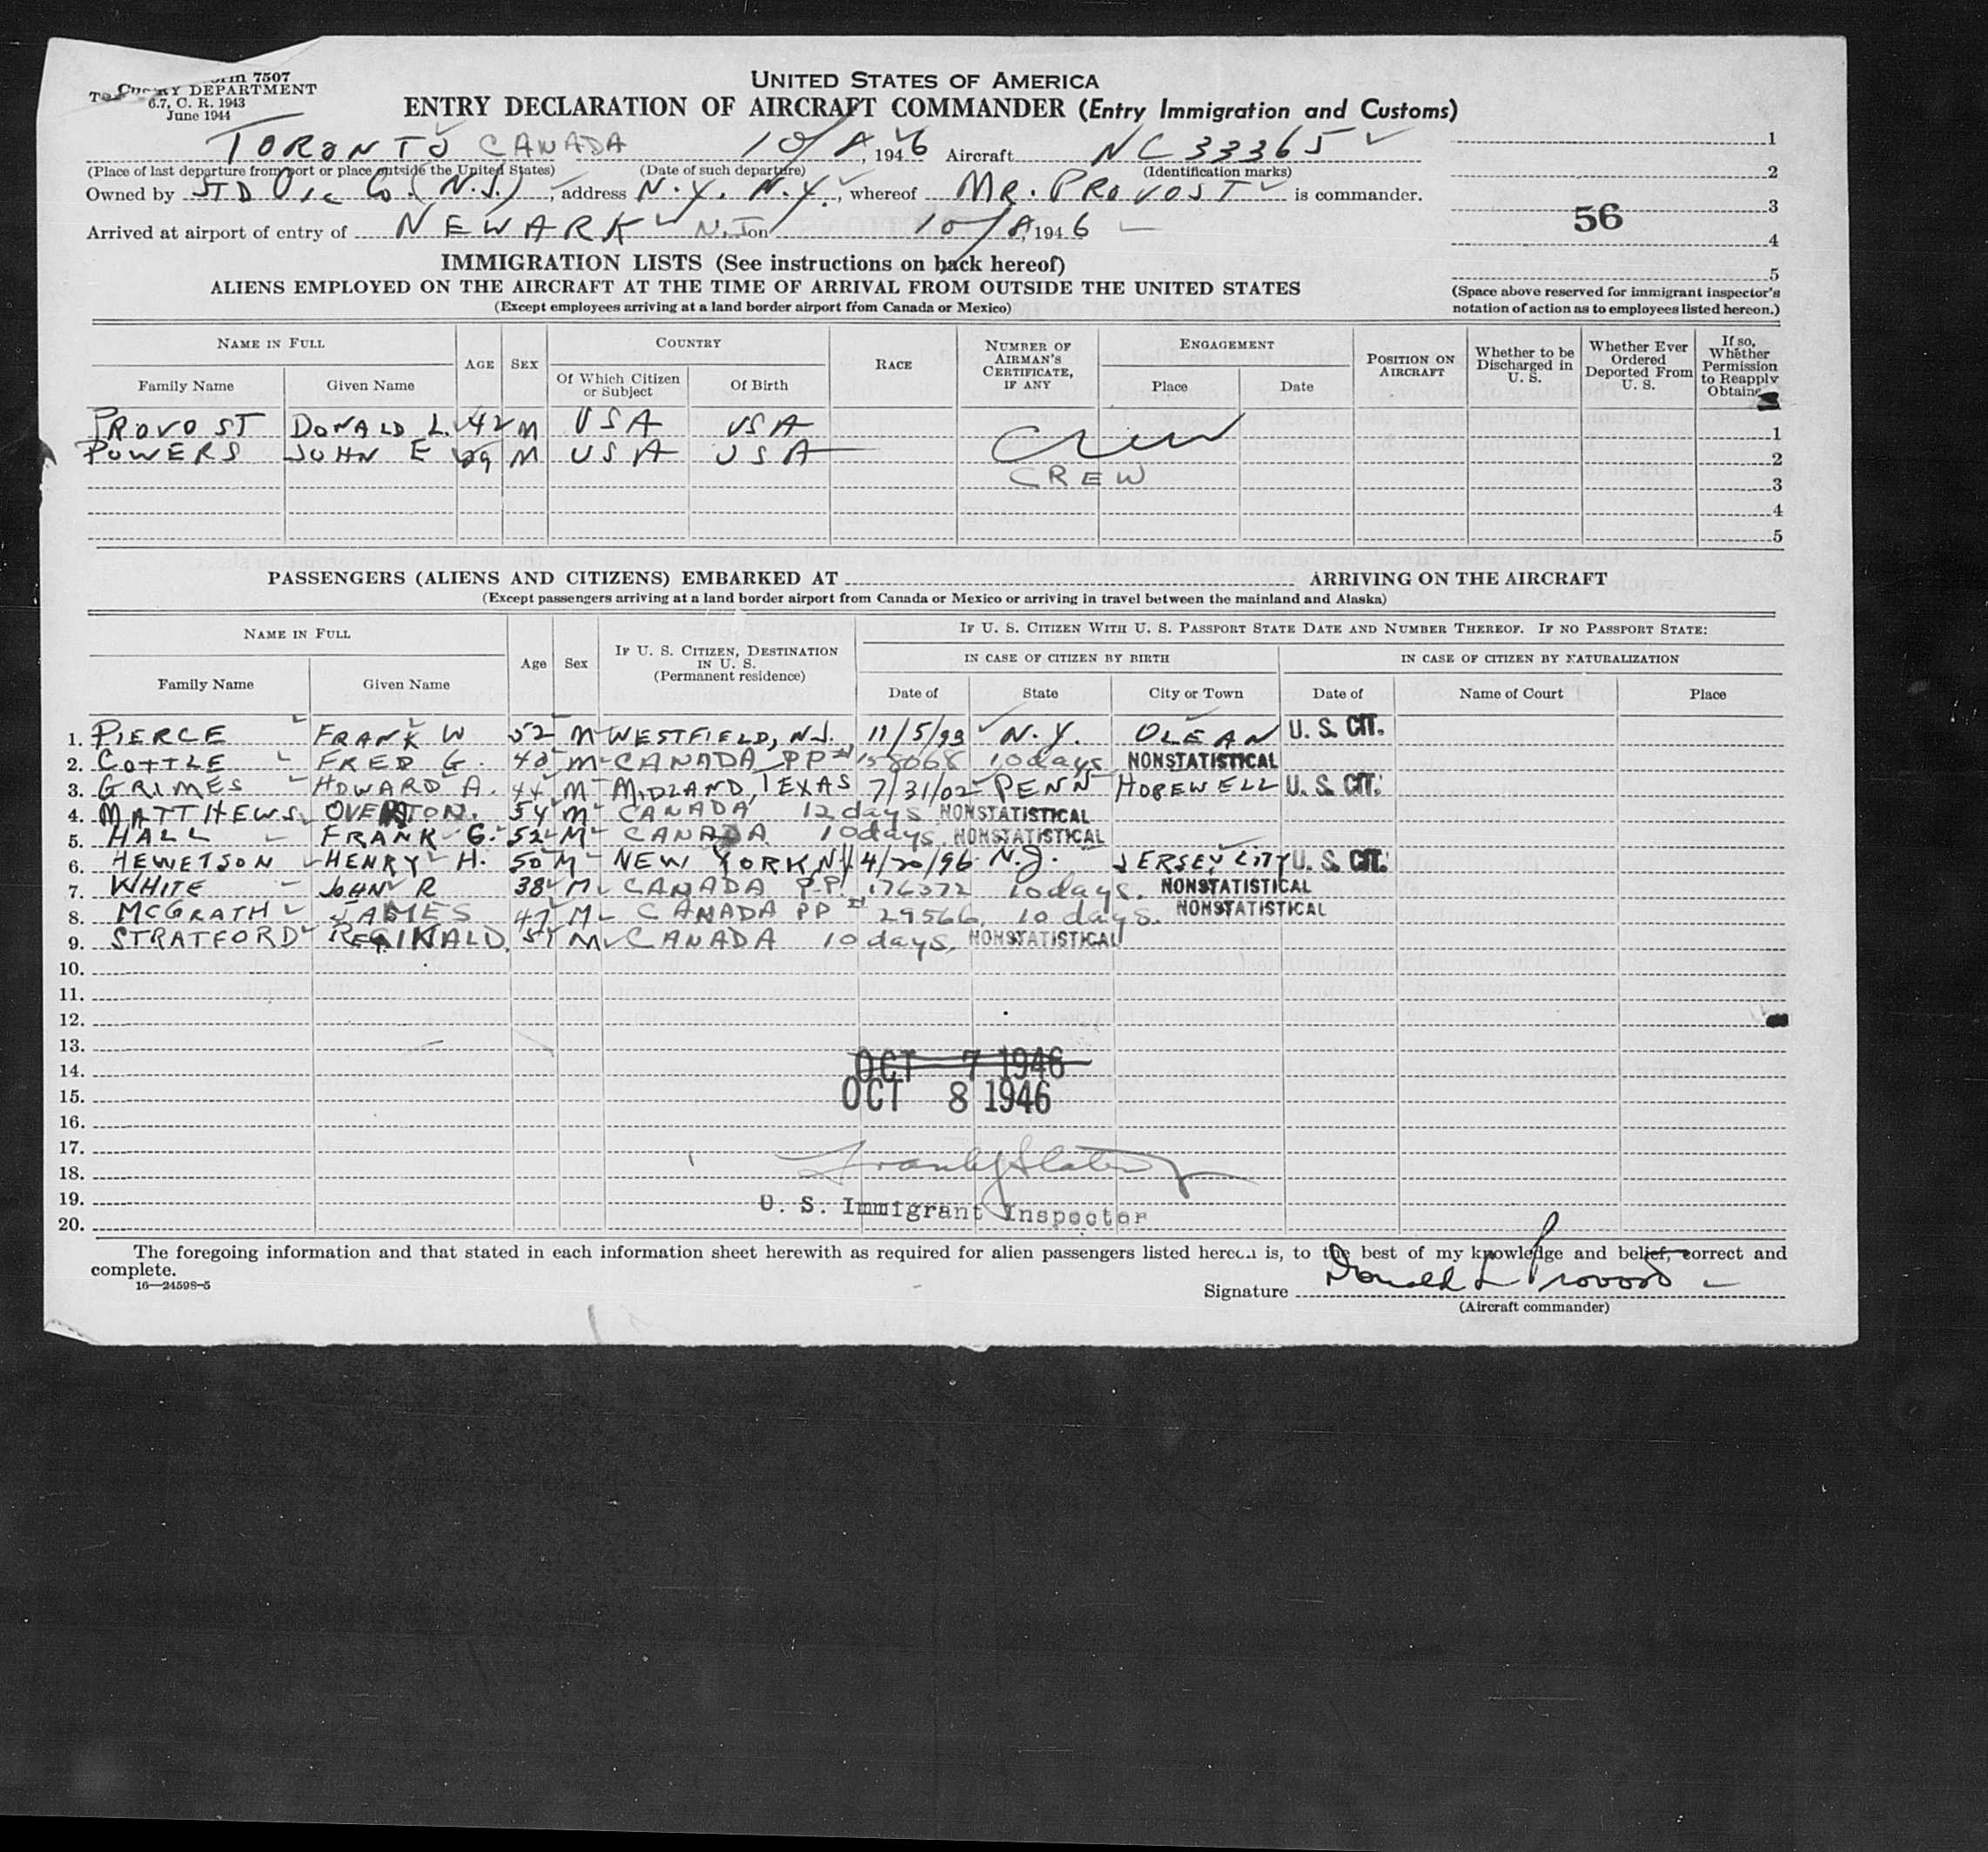 Form 7507
TREASURY DEPARTMENT
6.7, C. R. 1943
June 1944
UNITED STATES OF AMERICA
ENTRY DECLARATION OF AIRCRAFT COMMANDER (Entry Immigration and Customs)
TORONTO CANADA 10/8, 1946 Aircraft NC33365
(Place of last departure from port or place outside the United States) (Date of such departure) (Identification marks)
Owned by STD OIL CO (N.J.), address N.Y. N.Y., whereof MR. PROVOST is commander.
Arrived at airport of entry of NEWARK N.J. on 10/8, 1946
1
2
3
4
5
56
(Space above reserved for immigrant inspector's notation of action as to employees listed hereon.)
IMMIGRATION LISTS (See instructions on back hereof)
ALIENS EMPLOYED ON THE AIRCRAFT AT THE TIME OF ARRIVAL FROM OUTSIDE THE UNITED STATES
(Except employees arriving at a land border airport from Canada or Mexico)
NAME IN FULL AGE SEX COUNTRY RACE NUMBER OF AIRMAN'S CERTIFICATE, IF ANY ENGAGEMENT POSITION ON AIRCRAFT Whether to be Discharged in U. S. Whether Ever Ordered Deported From U. S. If so, Whether Permission to Reapply Obtained
Family Name Given Name Of Which Citizen or Subject Of Birth Place Date
PROVOST DONALD L. 42 M USA USA Crew 1
POWERS JOHN E 29 M USA USA 2
CREW 3
4
5
PASSENGERS (ALIENS AND CITIZENS) EMBARKED AT ARRIVING ON THE AIRCRAFT
(Except passengers arriving at a land border airport from Canada or Mexico or arriving in travel between the mainland and Alaska)
NAME IN FULL Age Sex IF U. S. CITIZEN, DESTINATION IN U. S. (Permanent residence) IF U. S. CITIZEN WITH U. S. PASSPORT STATE DATE AND NUMBER THEREOF. IF NO PASSPORT STATE:
IN CASE OF CITIZEN BY BIRTH IN CASE OF CITIZEN BY NATURALIZATION
Family Name Given Name Date of State City or Town Date of Name of Court Place
1. PIERCE FRANK W 52 M WESTFIELD, N.J. 11/5/93 N.Y. OLEAN U. S. CIT.
2. COTTLE FRED G. 48 M CANADA PP# 158068 10 days NONSTATISTICAL
3. GRIMES HOWARD A. 44 M MIDLAND, TEXAS 7/31/02 PENN HOPEWELL U. S. CIT.
4. MATTHEWS OVERTON. 54 M CANADA 12 days NONSTATISTICAL
5. HALL FRANK G. 52 M CANADA 10 days. NONSTATISTICAL
6. HEWETSON HENRY H. 50 M NEW YORK NY 4/20/96 N.J. JERSEY CITY U. S. CIT.
7. WHITE JOHN R 38 M CANADA P.P. 176372 10 days. NONSTATISTICAL
8. MCGRATH JAMES 47 M CANADA PP# 29566 10 days. NONSTATISTICAL
9. STRATFORD REGINALD 51 M CANADA 10 days. NONSTATISTICAL
10.
11.
12.
13.
14. OCT 7 1946
15. OCT 8 1946
16.
17.
18.
19. U. S. Immigrant Inspector
20.
The foregoing information and that stated in each information sheet herewith as required for alien passengers listed hereon is, to the best of my knowledge and belief, correct and
complete.
16—24598-5
Signature Donald L Provost
(Aircraft commander)